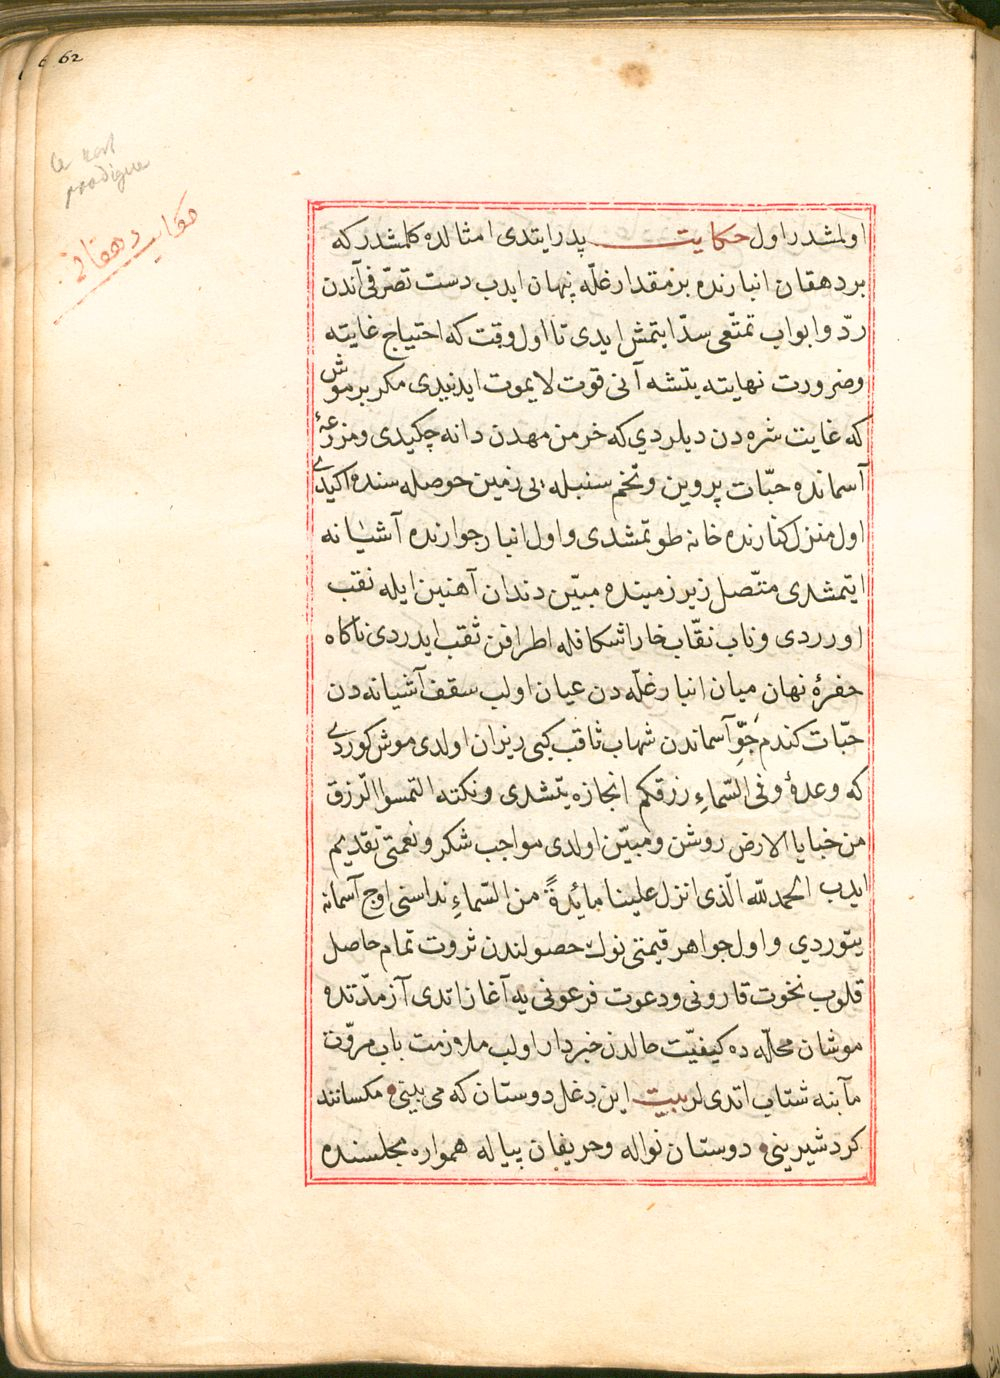 62
le rat
prodigue
حكايت دهقان
اولمشدر اول حكايت پدر ايتدى امثالده كلمشدر كه
بر دهقان انبارنده بر مقدار غلّه پنهان ايدب دست تصرّفى آندن
ردّ و ابواب تمتّعى سدّ ايتمش ايدى تا اول وقت كه احتياج غايته
وضرورت نهايته يتشه آنى قوت لايموت ايدنيدى مكر بر موش
كه غايت شرهدن ديلردي كه خرمن مهدن دانه چكيدى ومزرعۀ
آسمانده حبّات پروين وتخم سنبله يى زمين حوصله سنده اكيدى
اول منزل كنارنده خانه طوتمشدى واول انبار جوارنده آشيانه
ايتمشدى متّصل زير زمينده مبيّن دندان آهنين ايله نقب
اورردى وناب نقّاب خارا شكافله اطرافن ثقب ايدردى ناكاه
حفرۀ نهان ميان انبار غلّه دن عيان اولب سقف آشيانه دن
حبّات كندم جوِّ آسماندن شهاب ثاقب كبى ريزان اولدى موش كوردى
كه وعدۀ وفى السّماءِ رزقكم انجازه يتشدى ونكته التمسوا الرّزق
من خبايا الارض روشن ومبيّن اولدى مواجب شكر ونعمتى تقديم
ايدب الحمد للّه الّذى انزل علينا مائدةً من السّماءِ نداسنى اوج آسمانه
يتوردي واول جواهر قيمتى نوك حصولندن ثروت تمام حاصل
قلوب نخوت قارونى ودعوت فرعونى يه آغاز اتدى آز مدّتده
موشان محلّه ده كيفيّت حالدن خبردار اولب ملازمت باب مروّت
مآبنه شتاب اتدى لر بيت اين دغل دوستان كه مى بينى مكسانند
كرد شيرينى دوستان نواله وحريفان پياله همواره مجلسنده